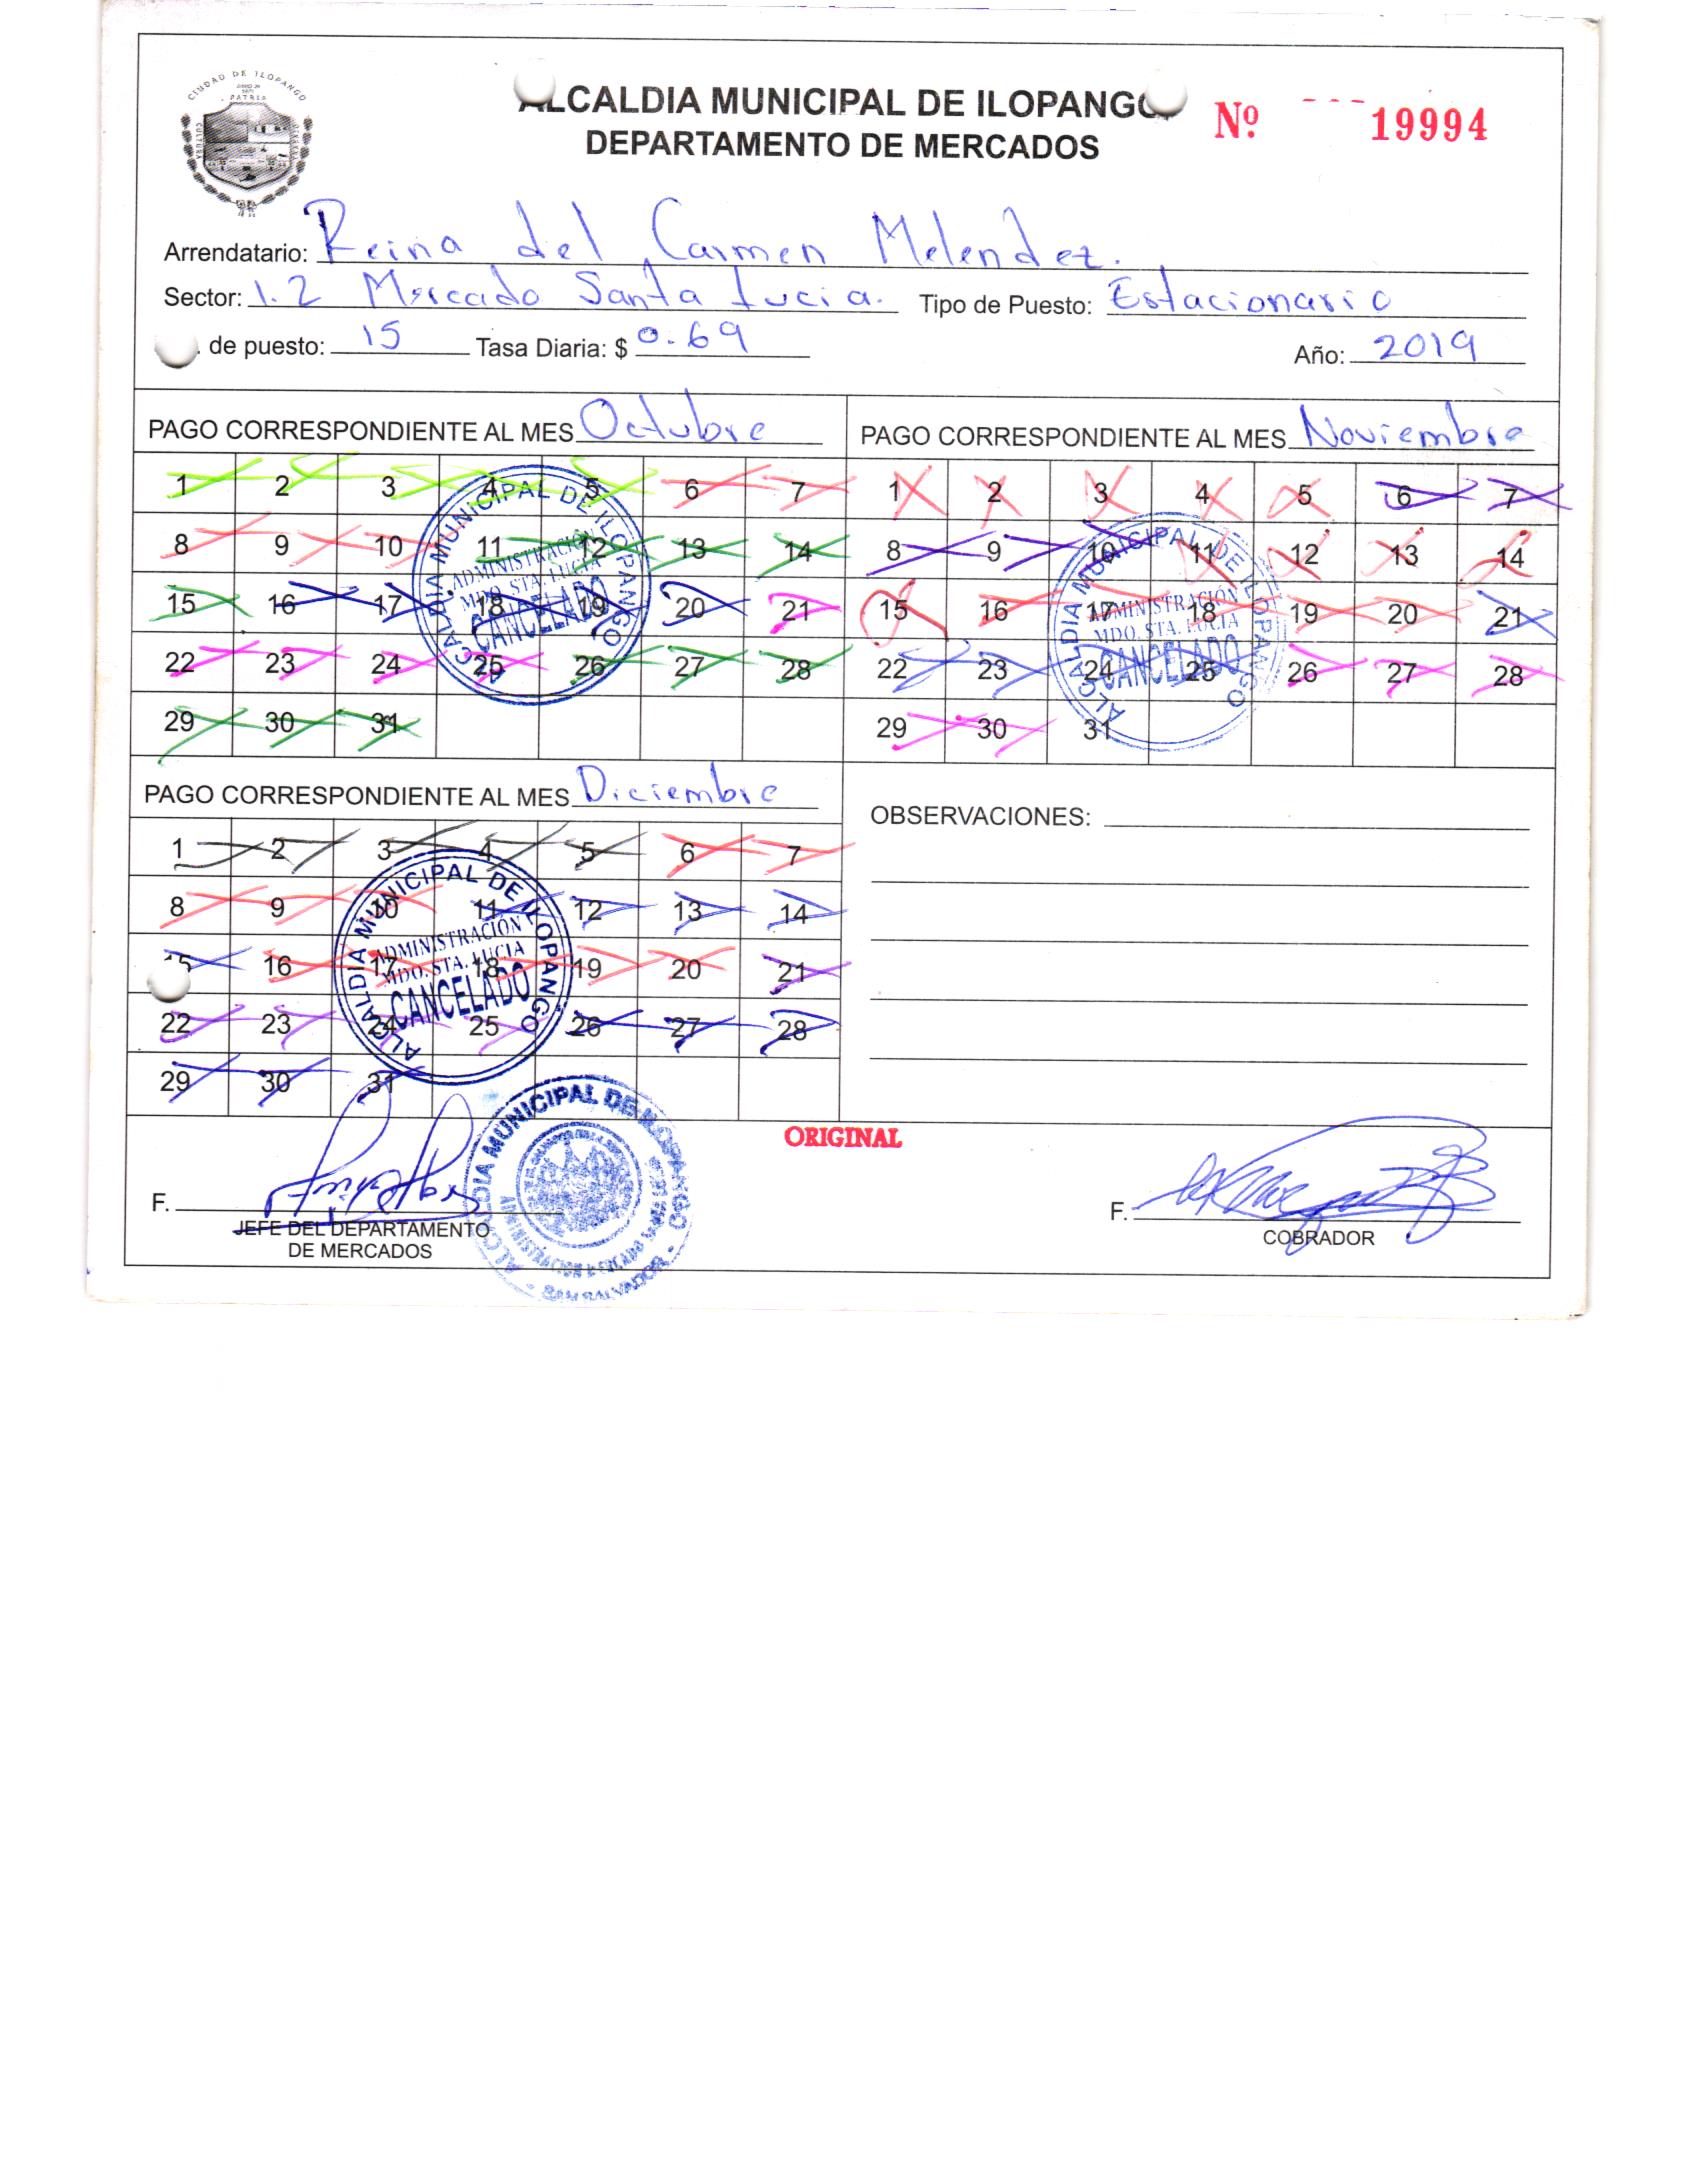 CIUDAD DE ILOPANGO
PATRIA
CULTURA
ALCALDIA MUNICIPAL DE ILOPANGO
DEPARTAMENTO DE MERCADOS
Nº 19994
Arrendatario: Reina del Carmen Melendez.
Sector: 1.2 Mercado Santa Lucia. Tipo de Puesto: Estacionario
de puesto: 15 Tasa Diaria: $ 0.69 Año: 2019
PAGO CORRESPONDIENTE AL MES Octubre
1 2 3 4 5 6 7
8 9 10 11 12 13 14
15 16 17 18 19 20 21
22 23 24 25 26 27 28
29 30 31
ALCALDIA MUNICIPAL DE ILOPANGO
ADMINISTRACIÓN
MDO. STA. LUCIA
CANCELADO
PAGO CORRESPONDIENTE AL MES Noviembre
1 2 3 4 5 6 7
8 9 10 11 12 13 14
15 16 17 18 19 20 21
22 23 24 25 26 27 28
29 30 31
ALCALDIA MUNICIPAL DE ILOPANGO
ADMINISTRACIÓN
MDO. STA. LUCIA
CANCELADO
PAGO CORRESPONDIENTE AL MES Diciembre
1 2 3 4 5 6 7
8 9 10 11 12 13 14
15 16 17 18 19 20 21
22 23 24 25 26 27 28
29 30 31
ALCALDIA MUNICIPAL DE ILOPANGO
ADMINISTRACIÓN
MDO. STA. LUCIA
CANCELADO
OBSERVACIONES:
ORIGINAL
F.
JEFE DEL DEPARTAMENTO
DE MERCADOS
ALCALDIA MUNICIPAL DE ILOPANGO
SAN SALVADOR
F.
COBRADOR